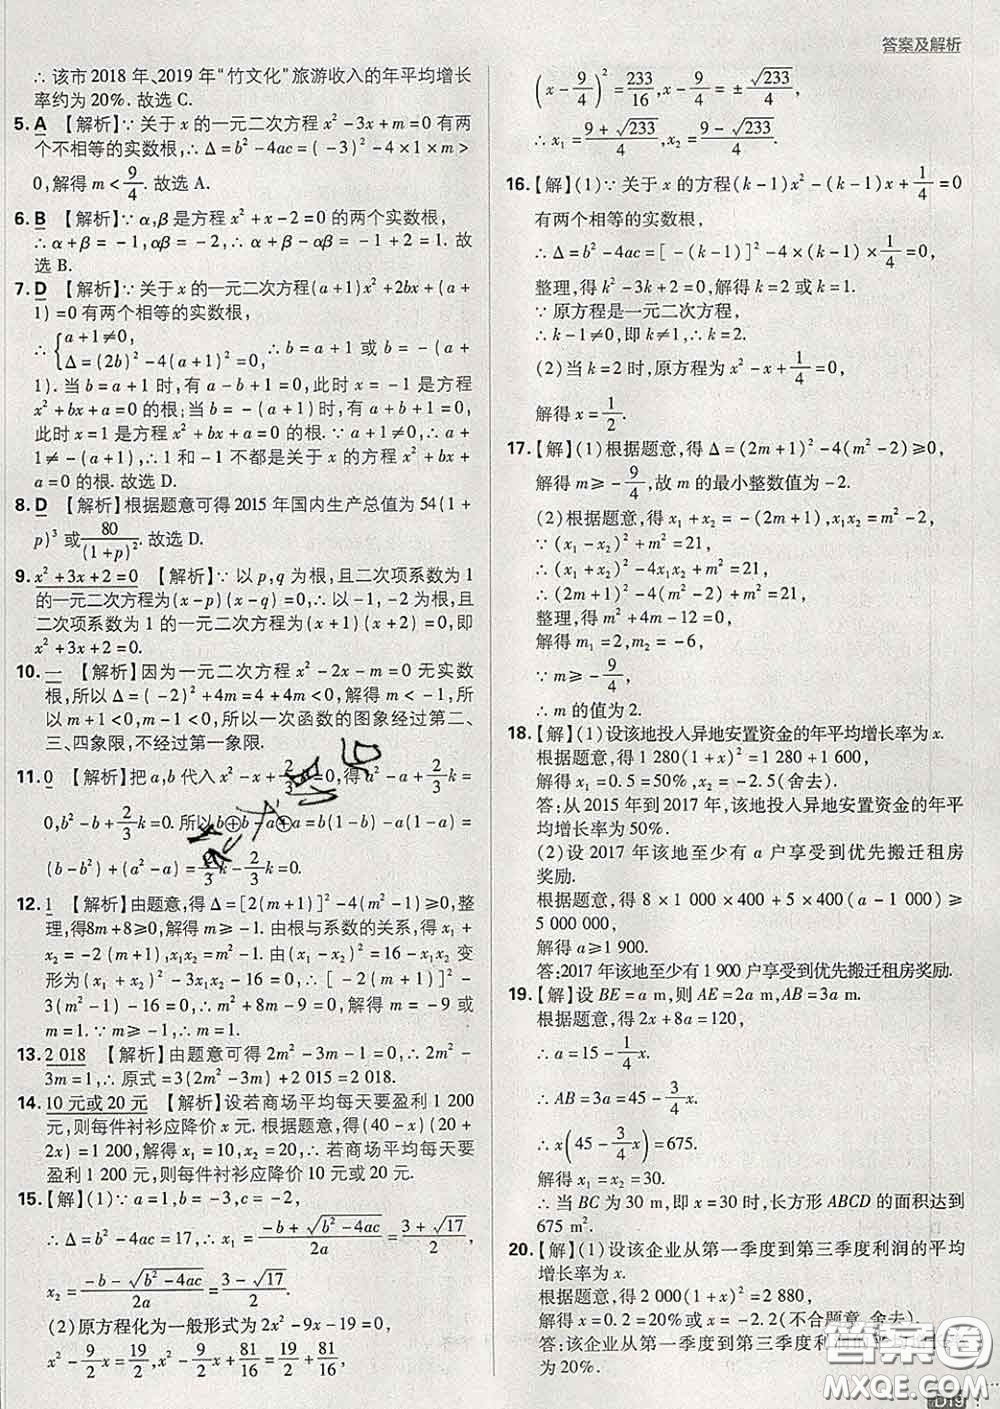 答案及解析
∴ 该市 2018 年、2019 年“竹文化”旅游收入的年平均增长
率约为 20%. 故选 C.
5. A 【解析】∵ 关于 x 的一元二次方程 x²-3x+m=0 有两
个不相等的实数根,∴ Δ=b²-4ac=(-3)²-4×1×m>
0,解得 m<9/4. 故选 A.
6. B 【解析】∵ α,β 是方程 x²+x-2=0 的两个实数根,
∴ α+β=-1,αβ=-2,∴ α+β-αβ=-1+2=1. 故
选 B.
7. D 【解析】∵ 关于 x 的一元二次方程(a+1)x²+2bx+(a+
1)=0 有两个相等的实数根,
∴ { a+1≠0,
Δ=(2b)²-4(a+1)²=0, ∴ b=a+1 或 b=-(a+
1). 当 b=a+1 时,有 a-b+1=0,此时 x=-1 是方程
x²+bx+a=0 的根;当 b=-(a+1)时,有 a+b+1=0,
此时 x=1 是方程 x²+bx+a=0 的根. ∵ a+1≠0,∴ a+
1≠-(a+1),∴ 1 和 -1 不都是关于 x 的方程 x²+bx+
a=0 的根. 故选 D.
8. D 【解析】根据题意可得 2015 年国内生产总值为 54(1+
p)³ 或 80/(1+p)². 故选 D.
9. x²+3x+2=0 【解析】∵ 以 p,q 为根,且二次项系数为 1
的一元二次方程为(x-p)(x-q)=0,∴ 以 -1,-2 为根,且
二次项系数为 1 的一元二次方程为(x+1)(x+2)=0,即
x²+3x+2=0.
10. 一 【解析】因为一元二次方程 x²-2x-m=0 无实数
根,所以 Δ=(-2)²+4m=4+4m<0,解得 m<-1,所
以 m+1<0,m-1<0,所以一次函数的图象经过第二、
三、四象限,不经过第一象限.
11. 0 【解析】把 a,b 代入 x²-x+2/3k=0,得 a²-a+2/3k=
0,b²-b+2/3k=0. 所以 b⊕b-a⊕a=b(1-b)-a(1-a)=
(b-b²)+(a²-a)=2/3k-2/3k=0.
12. 1 【解析】由题意,得 Δ=[2(m+1)]²-4(m²-1)≥0,整
理,得8m+8≥0,解得 m≥-1. 由根与系数的关系,得 x₁+
x₂=-2(m+1),x₁x₂=m²-1. 将 x₁²+x₂²=16-x₁x₂ 变
形为(x₁+x₂)²-x₁x₂-16=0,∴ [-2(m+1)]²-
(m²-1)-16=0,∴ m²+8m-9=0,解得 m=-9 或
m=1. ∵ m≥-1,∴ m=1.
13. 2 018 【解析】由题意可得 2m²-3m-1=0,∴ 2m²-
3m=1,∴ 原式=3(2m²-3m)+2 015=2 018.
14. 10 元或 20 元 【解析】设若商场平均每天要盈利 1 200
元,则每件衬衫应降价 x 元. 根据题意,得(40-x)(20+
2x)=1 200,解得 x₁=10,x₂=20,∴ 若商场平均每天要
盈利 1 200 元,则每件衬衫应降价 10 元或 20 元.
15. 【解】(1)∵ a=1,b=-3,c=-2,
∴ Δ=b²-4ac=17,∴ x₁=(-b+√(b²-4ac))/2a=(3+√17)/2,
x₂=(-b-√(b²-4ac))/2a=(3-√17)/2.
(2)原方程化为一般形式为 2x²-9x-19=0,
x²-9/2x=19/2,x²-9/2x+81/16=19/2+81/16,
(x-9/4)²=233/16,x-9/4=±√233/4,
∴ x₁=(9+√233)/4,x₂=(9-√233)/4.
16. 【解】(1)∵ 关于 x 的方程(k-1)x²-(k-1)x+1/4=0
有两个相等的实数根,
∴ Δ=b²-4ac=[-(k-1)]²-4×(k-1)×1/4=0,
整理,得 k²-3k+2=0,解得 k=2 或 k=1.
∵ 原方程是一元二次方程,
∴ k-1≠0,即 k≠1,∴ k=2.
(2)当 k=2 时,原方程为 x²-x+1/4=0,
解得 x=1/2.
17. 【解】(1)根据题意,得 Δ=(2m+1)²-4(m²-2)≥0,
解得 m≥-9/4,故 m 的最小整数值为 -2.
(2)根据题意,得 x₁+x₂=-(2m+1),x₁x₂=m²-2,
∵ (x₁-x₂)²+m²=21,
∴ (x₁+x₂)²-4x₁x₂+m²=21,
∴ (2m+1)²-4(m²-2)+m²=21,
整理,得 m²+4m-12=0,
解得 m₁=2,m₂=-6,
∵ m≥-9/4,
∴ m 的值为 2.
18. 【解】(1)设该地投入异地安置资金的年平均增长率为 x.
根据题意,得 1 280(1+x)²=1 280+1 600,
解得 x₁=0.5=50%,x₂=-2.5(舍去).
答:从 2015 年到 2017 年,该地投入异地安置资金的年平
均增长率为 50%.
(2)设 2017 年该地至少有 a 户享受到优先搬迁租房
奖励.
根据题意,得 8×1 000×400+5×400(a-1 000)≥
5 000 000,
解得 a≥1 900.
答:2017 年该地至少有 1 900 户享受到优先搬迁租房奖励.
19. 【解】设 BE=a m,则 AE=2a m,AB=3a m.
根据题意,得 2x+8a=120,
∴ a=15-1/4x.
∴ AB=3a=45-3/4x,
∴ x(45-3/4x)=675.
解得 x₁=x₂=30.
∴ 当 BC 为 30 m,即 x=30 时,长方形 ABCD 的面积达到
675 m².
20. 【解】(1)设该企业从第一季度到第三季度利润的平均
增长率为 x.
根据题意,得 2 000(1+x)²=2 880,
解得 x=0.2=20%或 x=-2.2(不合题意,舍去).
答:该企业从第一季度到第三季度利
为 20%.
答案圈
MXQE.COM
D19